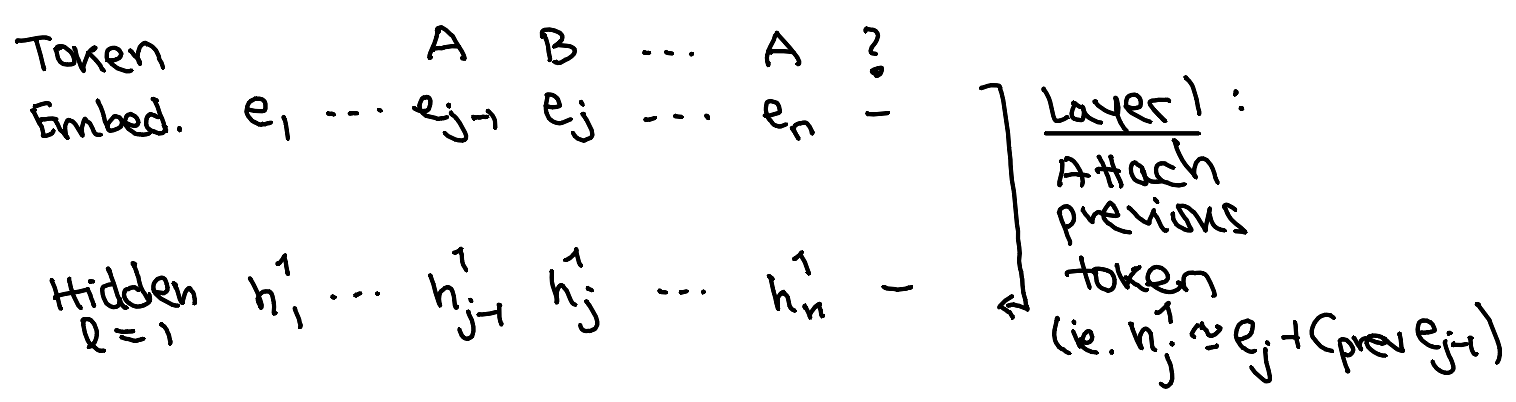 Token A B ... A ?
Embed. e₁ ... e_{j-1} e_j ... e_n -
Hidden h₁¹ ... h_{j-1}¹ h_j¹ ... h_n¹ -
l = 1
Layer 1 :
Attach
previous
token
(ie. h_j¹ ≃ e_j + C_{prev} e_{j-1})